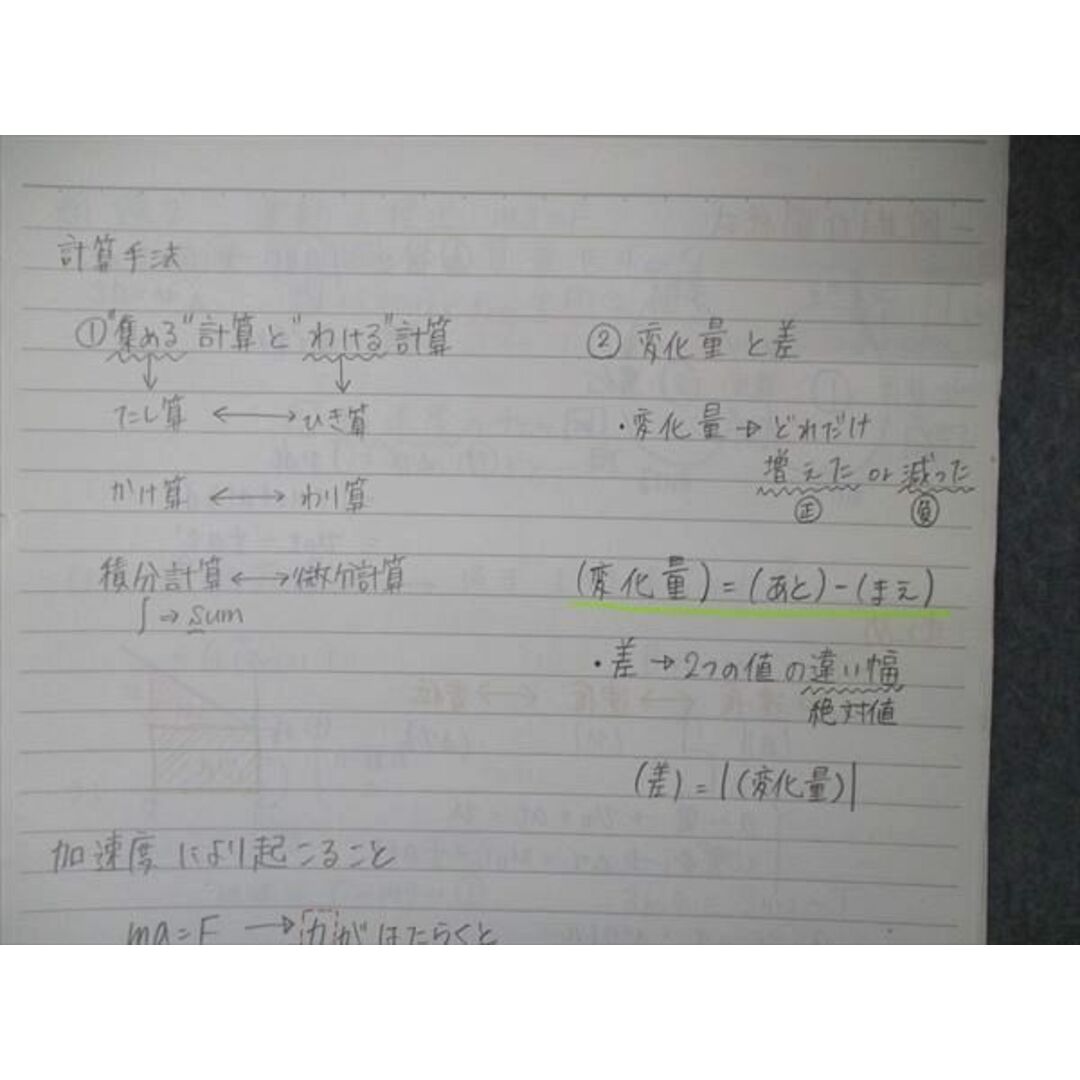 計算手法
①"集める"計算と"わける"計算
たし算 ⟷ ひき算
かけ算 ⟷ わり算
積分計算⟷微分計算
∫ ⇒ sum
② 変化量 と差
・変化量 → どれだけ
増えた or 減った
正 負
(変化量) = (あと) - (まえ)
・差 → 2つの値の違い幅
絶対値
(差) = |(変化量)|
加速度 により起こること
ma = F → 力がはたらくと